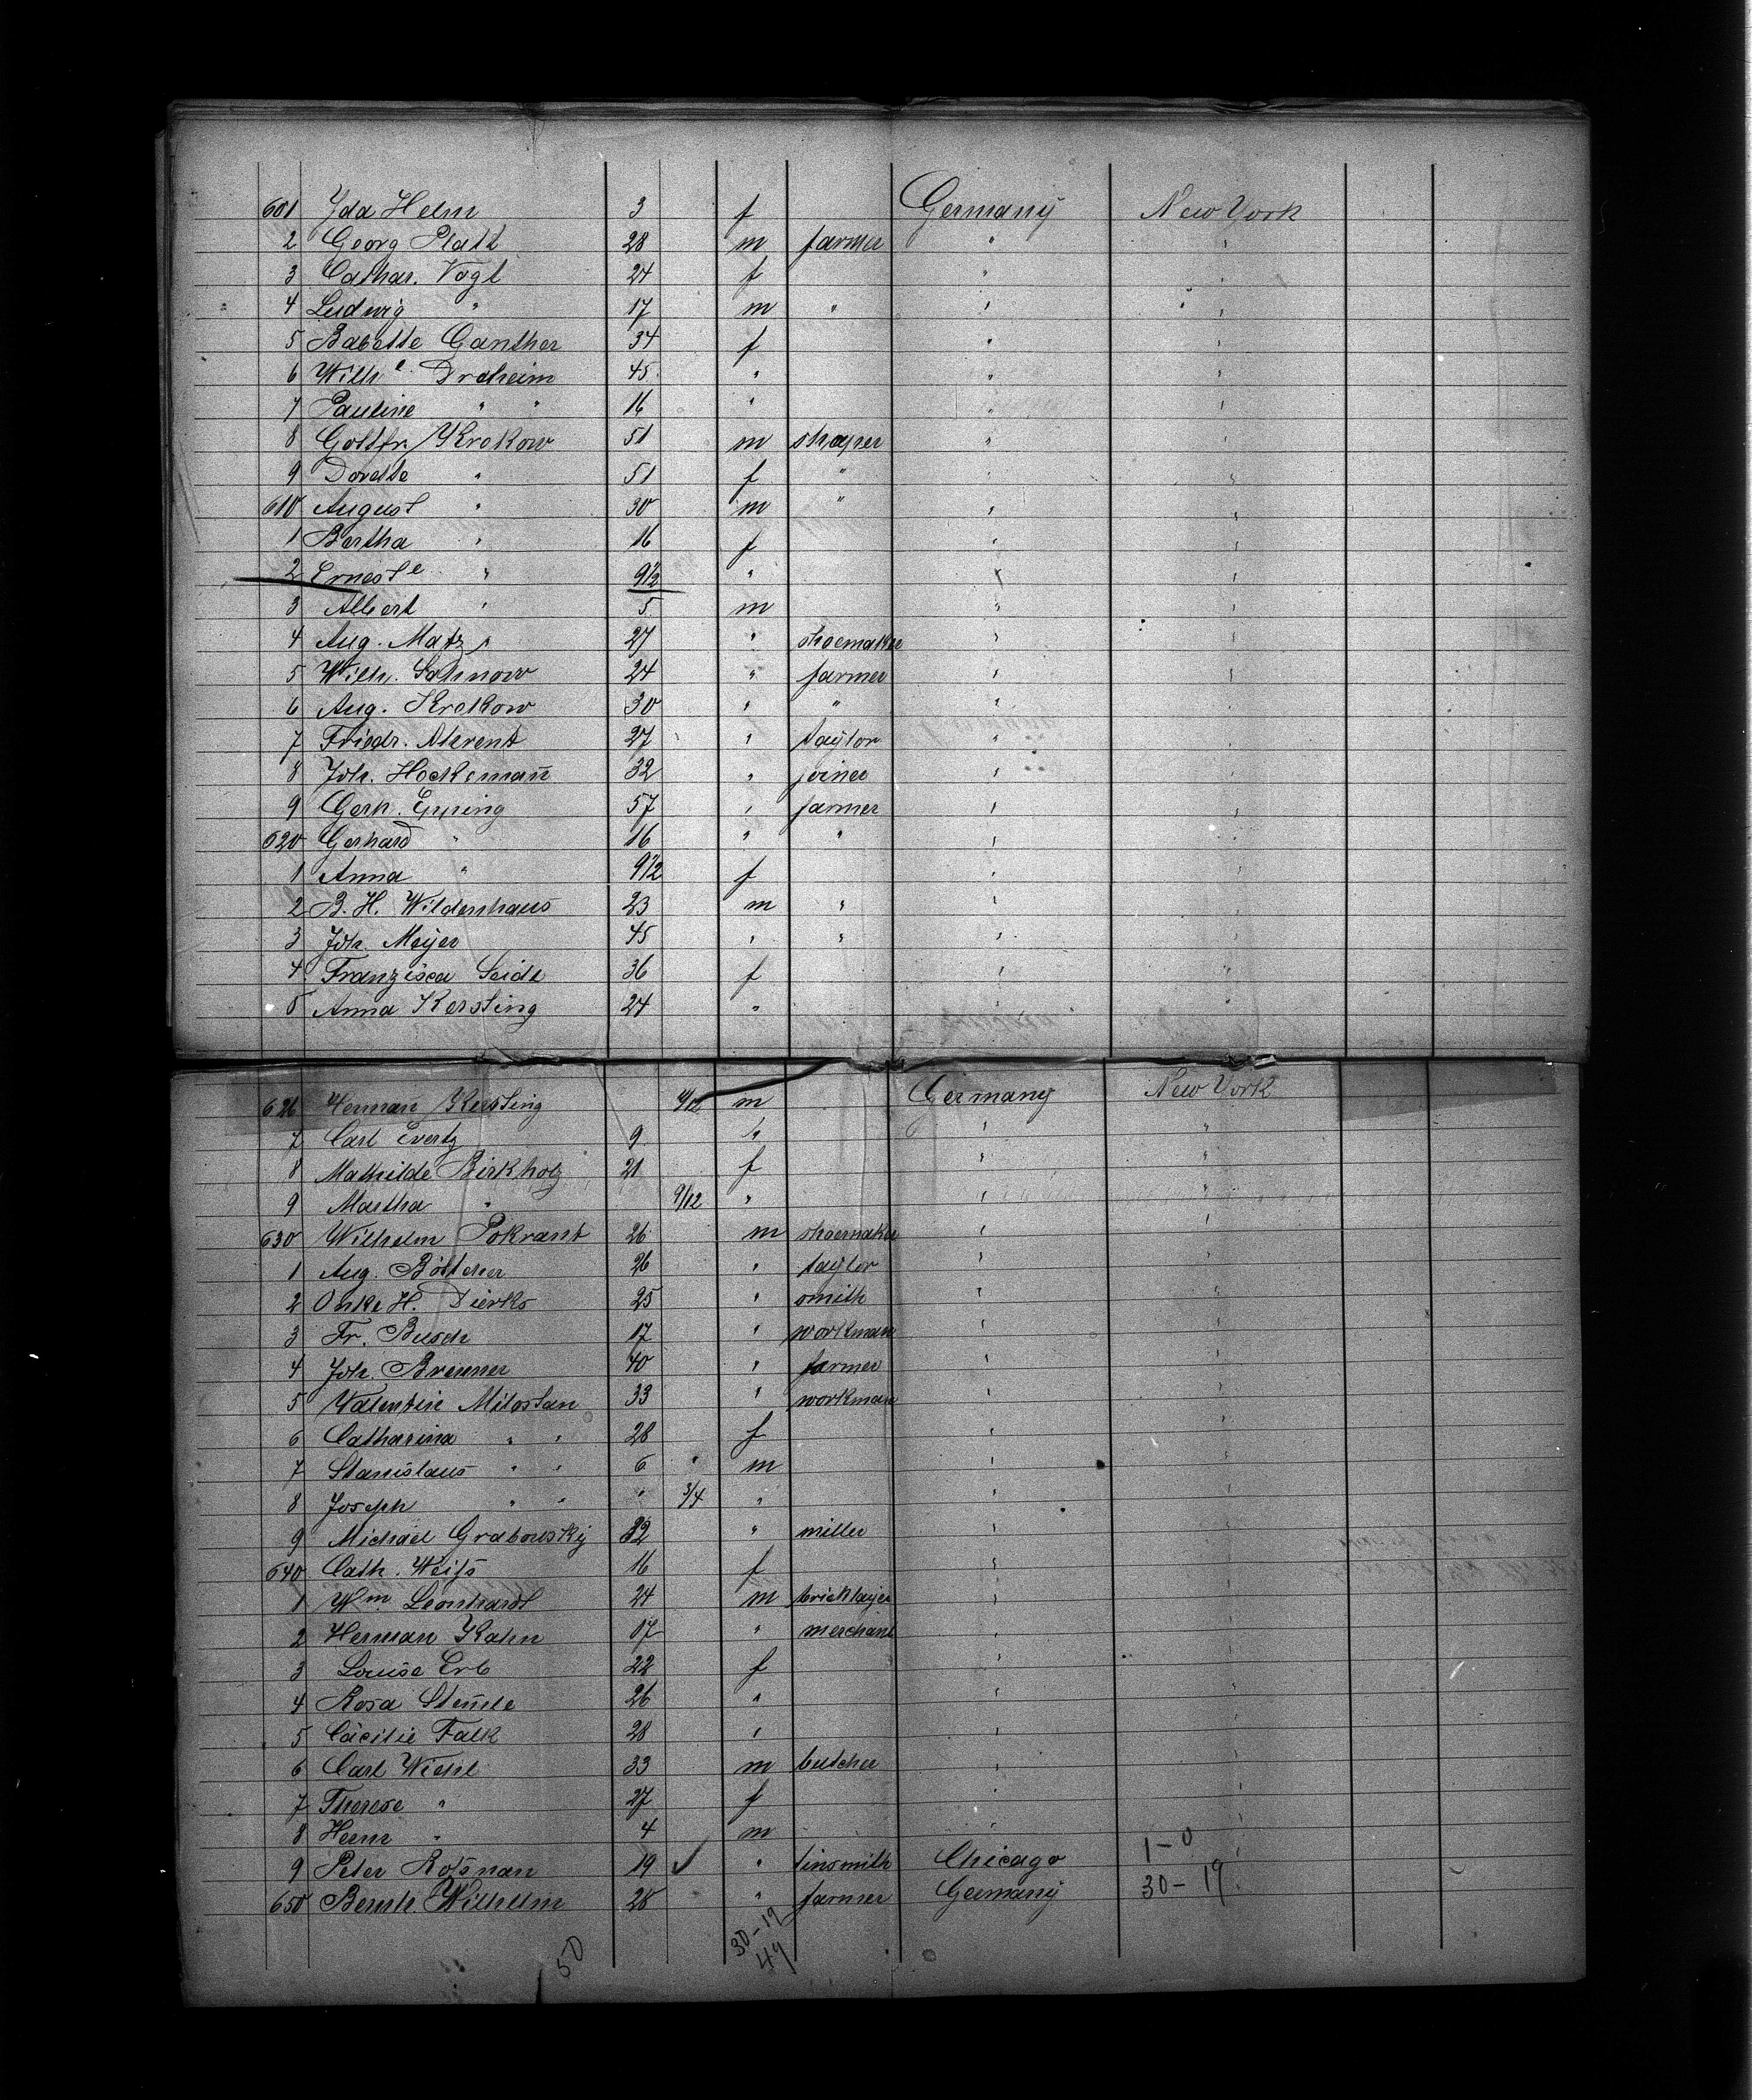 601 Ida Helm 3 f Germany New York
2 Georg Platt 28 m farmer " "
3 Cathar. Vogt 24 f " "
4 Ludwig " 17 m " " "
5 Babette Ganther 34 f " "
6 Wilh.e Draheim 45 " " "
7 Pauline " " 16 " " "
8 Gottfr. Krokow 51 m " "
9 Dorette " 51 f " " "
610 August " 30 m " " "
1 Bertha " 16 f " "
2 Erneste " 9 1/2 " " "
3 Albert " 5 m " "
4 Aug. Matz 27 " shoemaker " "
5 Wilh. 24 " farmer " "
6 Aug. Krokow 30 " " " "
7 Friedr. 27 " taylor " "
8 Joh. Hockemañ 32 " joiner " "
9 Gerh. Epping 57 " farmer " "
620 Gerhard " 16 " " " "
1 Anna " 9 1/2 f " "
2 B. H. Wildenhaus 23 m " " "
3 Joh. Meyer 45 " " " "
4 Franzisca Seidt 36 f " "
5 Anna Kersting 24 " " "
626 Herman Kersting m Germany New York
7 Carl Evertz 9 " " "
8 Mathilde Birkholz 21 f " "
9 Martha " 9/12 " " "
630 Wilhelm Pokrant 26 m shoemaker " "
1 Aug. Böttcher 26 " taylor " "
2 H. Dierks 25 " smith " "
3 Fr. Busch 17 " workman " "
4 Joh. Brenner 40 " farmer " "
5 Valentin Milostan 33 " workman " "
6 Catharina " " 28 f " "
7 Stanislaus " " 6 " m " "
8 Joseph " " " 3/4 " " "
9 Michael Grabousky 32 " miller " "
640 Cath. Weifs 16 f " "
1 Wm Leonhardt 24 m bricklayer " "
2 Herman Kahn 17 " merchant " "
3 Louise Erb 22 f " "
4 Rosa 26 " " "
5 Cäcilie Falk 28 " " "
6 Carl Wiehl 33 m butcher " "
7 Therese " 27 f " "
8 " 4 m " "
9 Peter Rofsman 19 ✓ " tinsmith Chicago 1-0 "
650 Bernh. Wilhelm 28 " farmer Germany 30-19
50 30-19
49